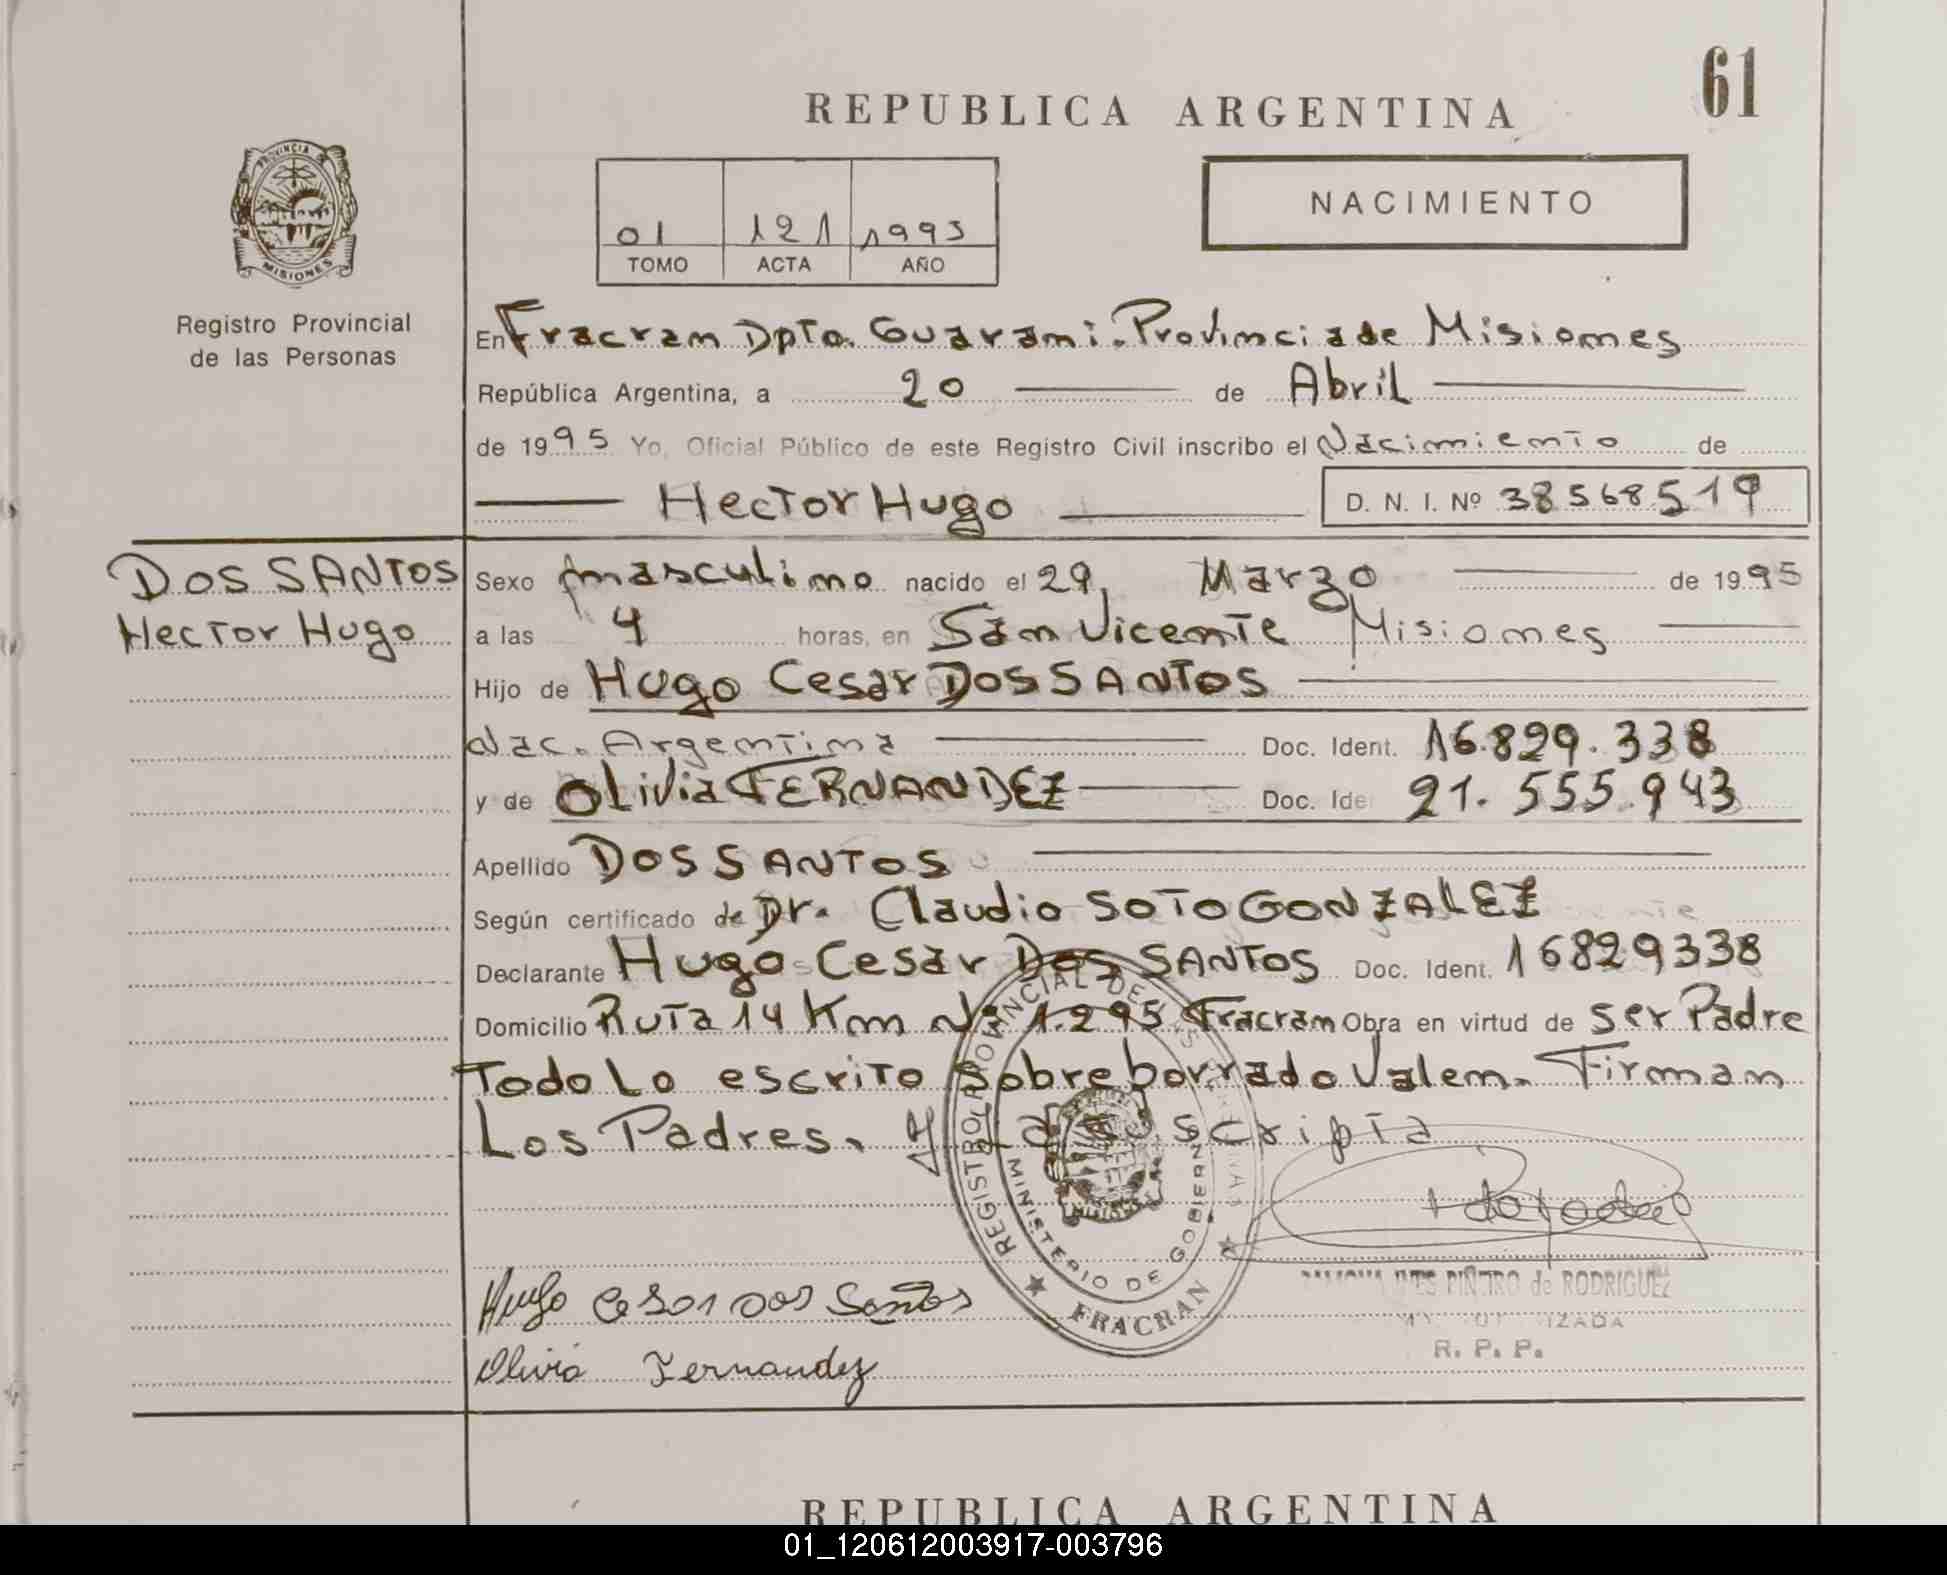 61
REPUBLICA ARGENTINA
NACIMIENTO
01 121 1995
TOMO ACTA AÑO
PROVINCIA DE
MISIONES
Registro Provincial
de las Personas
En Fracran Dpto. Guarani. Provincia de Misiones
República Argentina, a 20 de Abril
de 1995 Yo, Oficial Público de este Registro Civil inscribo el Nacimiento de
Hector Hugo D. N. I. Nº 38568519
DOS SANTOS
Hector Hugo
Sexo masculino nacido el 29 Marzo de 1995
a las 4 horas, en San Vicente Misiones
Hijo de Hugo Cesar DOS SANTOS
Nac. Argentina Doc. Ident. 16.829.338
y de Olivia FERNANDEZ Doc. Ide 21.555.943
Apellido DOS SANTOS
Según certificado de Dr. Claudio SOTO GONZALEZ
Declarante Hugo Cesar Dos SANTOS Doc. Ident. 16829338
Domicilio Ruta 14 Km Nº 1.295 Fracran Obra en virtud de ser Padre
Todo lo escrito Sobre borrado Valen. Firman
Los Padres. y La suscripta
REGISTRO PROVINCIAL DE LAS PERSONAS
MINISTERIO DE GOBIERNO
FRACRAN
PIÑEIRO de RODRIGUEZ
R. P. P.
Hugo Cesar Dos Santos
Olivia Fernandez
REPUBLICA ARGENTINA
01_120612003917-003796